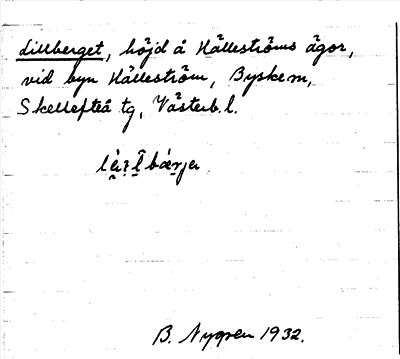 Lillberget, höjd å Hälleströms ägor,
vid byn Hälleström, Byskem,
Skellefteå tg, Västerb. l.
B. Nygren 1932.